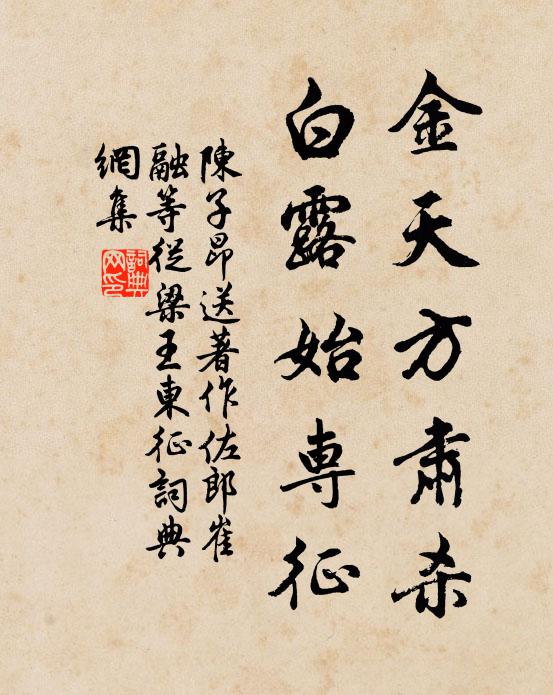 金天方肅杀
白露始専征
陳子昂送著作佐郎崔
融等從梁王東征詞典
網集
詞典
网印